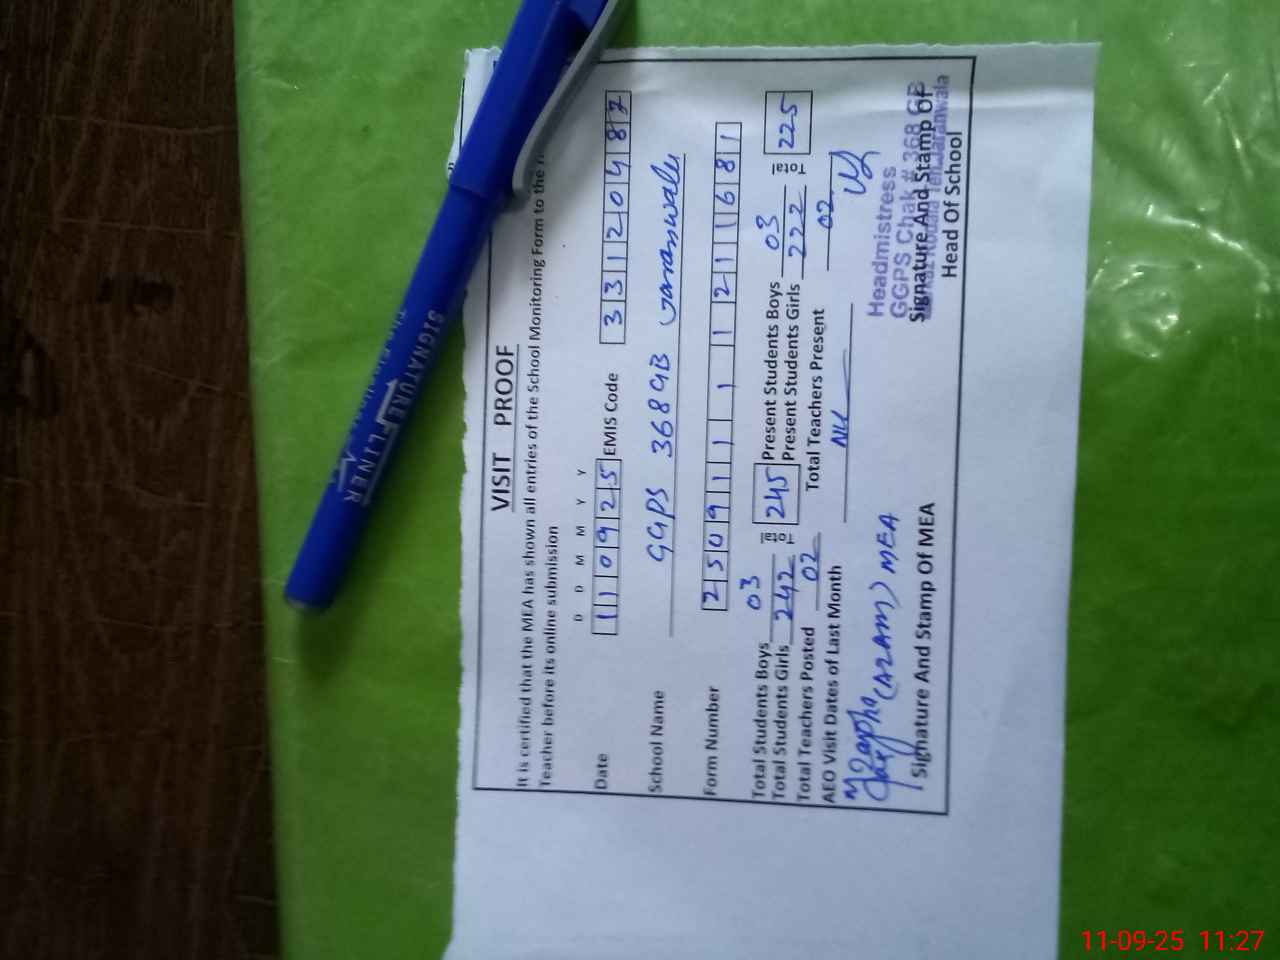 VISIT PROOF
It is certified that the MEA has shown all entries of the School Monitoring Form to the
Teacher before its online submission
D D M M Y Y
Date 110925 EMIS Code 33120482
School Name GGPS 368GB Jaranwala
Form Number 250911111211681
Total Students Boys 03 Total 245 Present Students Boys 03 Total 225
Total Students Girls 242 Present Students Girls 222
Total Teachers Posted 02 Total Teachers Present 02
AEO Visit Dates of Last Month Nil
(AZAM) MEA
Signature And Stamp Of MEA
Headmistress
GGPS Chak # 368 GB
Signature And Stamp Of
Head Of School
SIGNATURE LINER
11-09-25 11:27